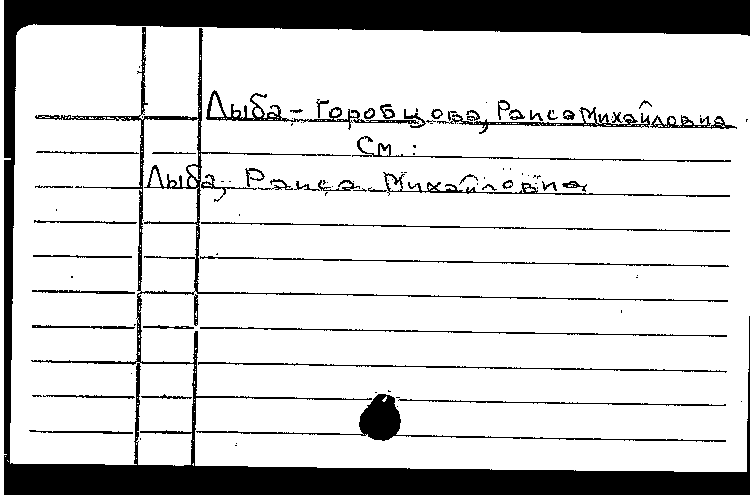 Лыба - Горобцова, Раиса Михайловна
См.:
Лыба, Раиса Михайловна